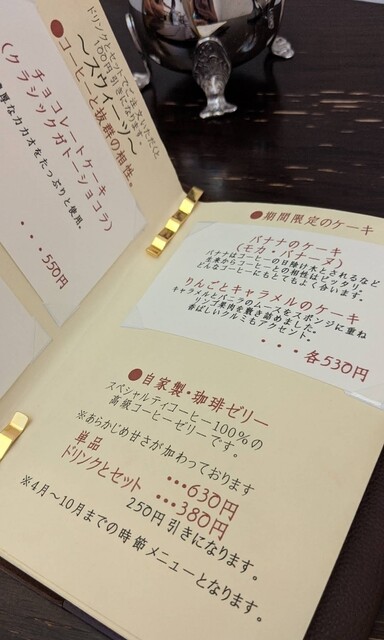 ドリンクとセットでご注文いただくと
100円引きになります。
～スウィーツ～
●コーヒーと抜群の相性。
チョコレートケーキ
(クラシックガトーショコラ)
厚なカカオをたっぷりと使用。
・・・550円
●期間限定のケーキ
バナナのケーキ
(モカ・バナーヌ)
バナナはコーヒーの日除け木とされるなど
古来からコーヒーとの相性はピッタリ。
どんなコーヒーにもとてもよく合います。
りんごとキャラメルのケーキ
キャラメルとバニラのムースをスポンジに重ね
リンゴ果肉を敷き詰めました。
香ばしいクルミもアクセント。
・・・各530円
●自家製・珈琲ゼリー
スペシャルティコーヒー100%の
高級コーヒーゼリーです。
※あらかじめ甘さが加わっております
単品 ・・・630円
ドリンクとセット ・・・380円
250円引きになります。
※4月～10月までの時節メニューとなります。